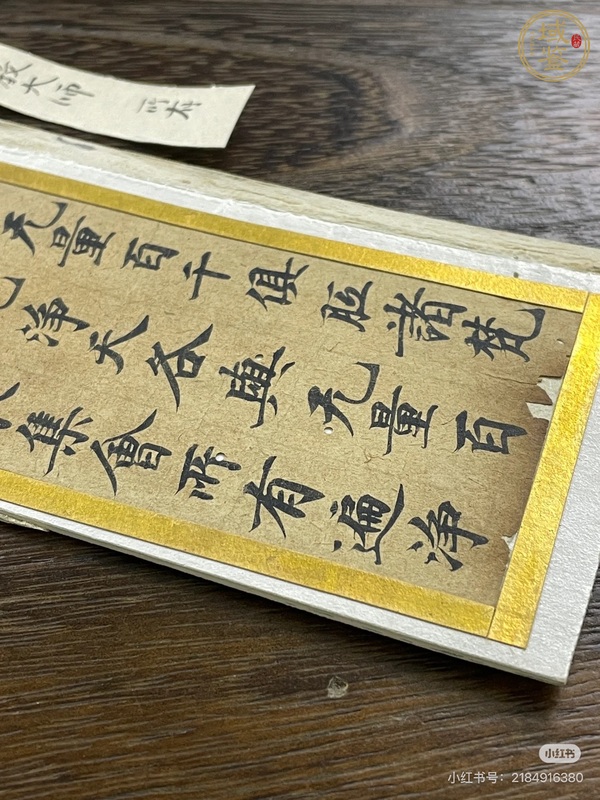 大师
无量百千俱胝諸梵
淨天各與无量百
集會所有遍淨
小红书
小红书号：2184916380